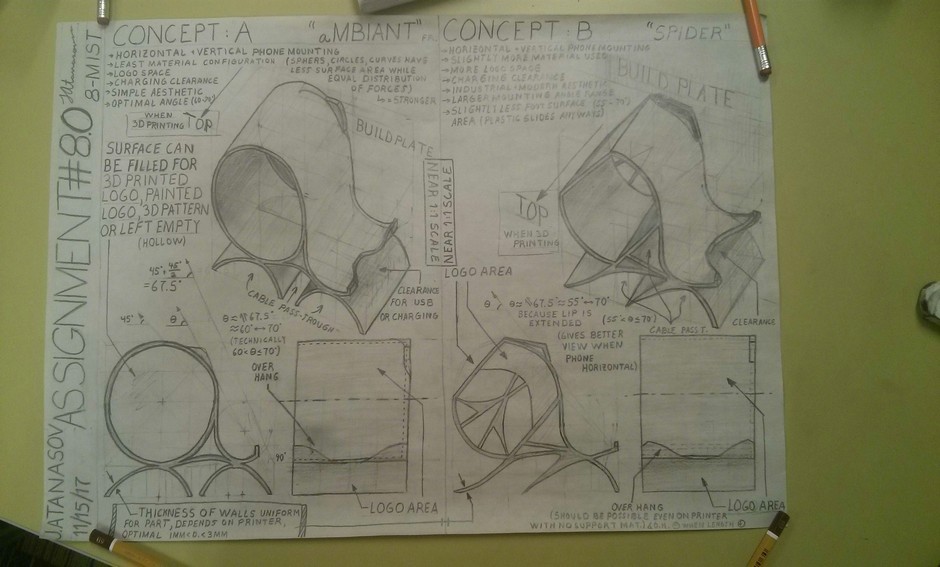 J.ATANASOV ASSIGNMENT#8.0
11/15/17
8-MIST
CONCEPT: A "aMBIANT"
→HORIZONTAL + VERTICAL PHONE MOUNTING
→LEAST MATERIAL CONFIGURATION (SPHERS, CIRCLES, CURVES HAVE
LESS SURFACE AREA WHILE
EQUAL DISTRIBUTION
OF FORCES)
↳=STRONGER
→LOGO SPACE
→CHARGING CLEARANCE
→SIMPLE AESTHETIC
→OPTIMAL ANGLE
WHEN
3D PRINTING TOP
BUILD PLATE
SURFACE CAN
BE FILLED FOR
3D PRINTED
LOGO, PAINTED
LOGO, 3D PATTERN
OR LEFT EMPTY
(HOLLOW)
45°+45°/2
=67.5°
45° θ
CABLE PASS-THOUGH
CLEARANCE
FOR USB
OR CHARGING
NEAR 1:1 SCALE
θ≈67.5°
≈60°↔70°
(TECHNICALLY
60<θ≤70°
OVER
HANG
40°
LOGO AREA
THICKNESS OF WALLS UNIFORM
FOR PART, DEPENDS ON PRINTER,
OPTIMAL 1MM<D.<3MM
CONCEPT: B "SPIDER"
→HORIZONTAL + VERTICAL PHONE MOUNTING
→SLIGHTLY MORE MATERIAL USED
→MORE LOGO SPACE
→CHARGING CLEARANCE
→INDUSTRIAL + MODERN AESTHETIC
→LARGER MOUNTING PHONE RANGE
→SLIGHTLY LESS SURFACE
AREA (PLASTIC GLIDES ANYWAYS)
BUILD PLATE
TOP
WHEN 3D
PRINTING
NEAR 1:1 SCALE
LOGO AREA
θ θ≈67.5°≈55°↔70°
BECAUSE LIP IS
EXTENDED
(GIVES BETTER
VIEW WHEN
PHONE
HORIZONTAL)
(55°<θ≤70°)
CABLE PASS T.
CLEARANCE
OVER HANG
LOGO AREA
(SHOULD BE POSSIBLE EVEN ON PRINTER
WITH NO SUPPORT MAT.